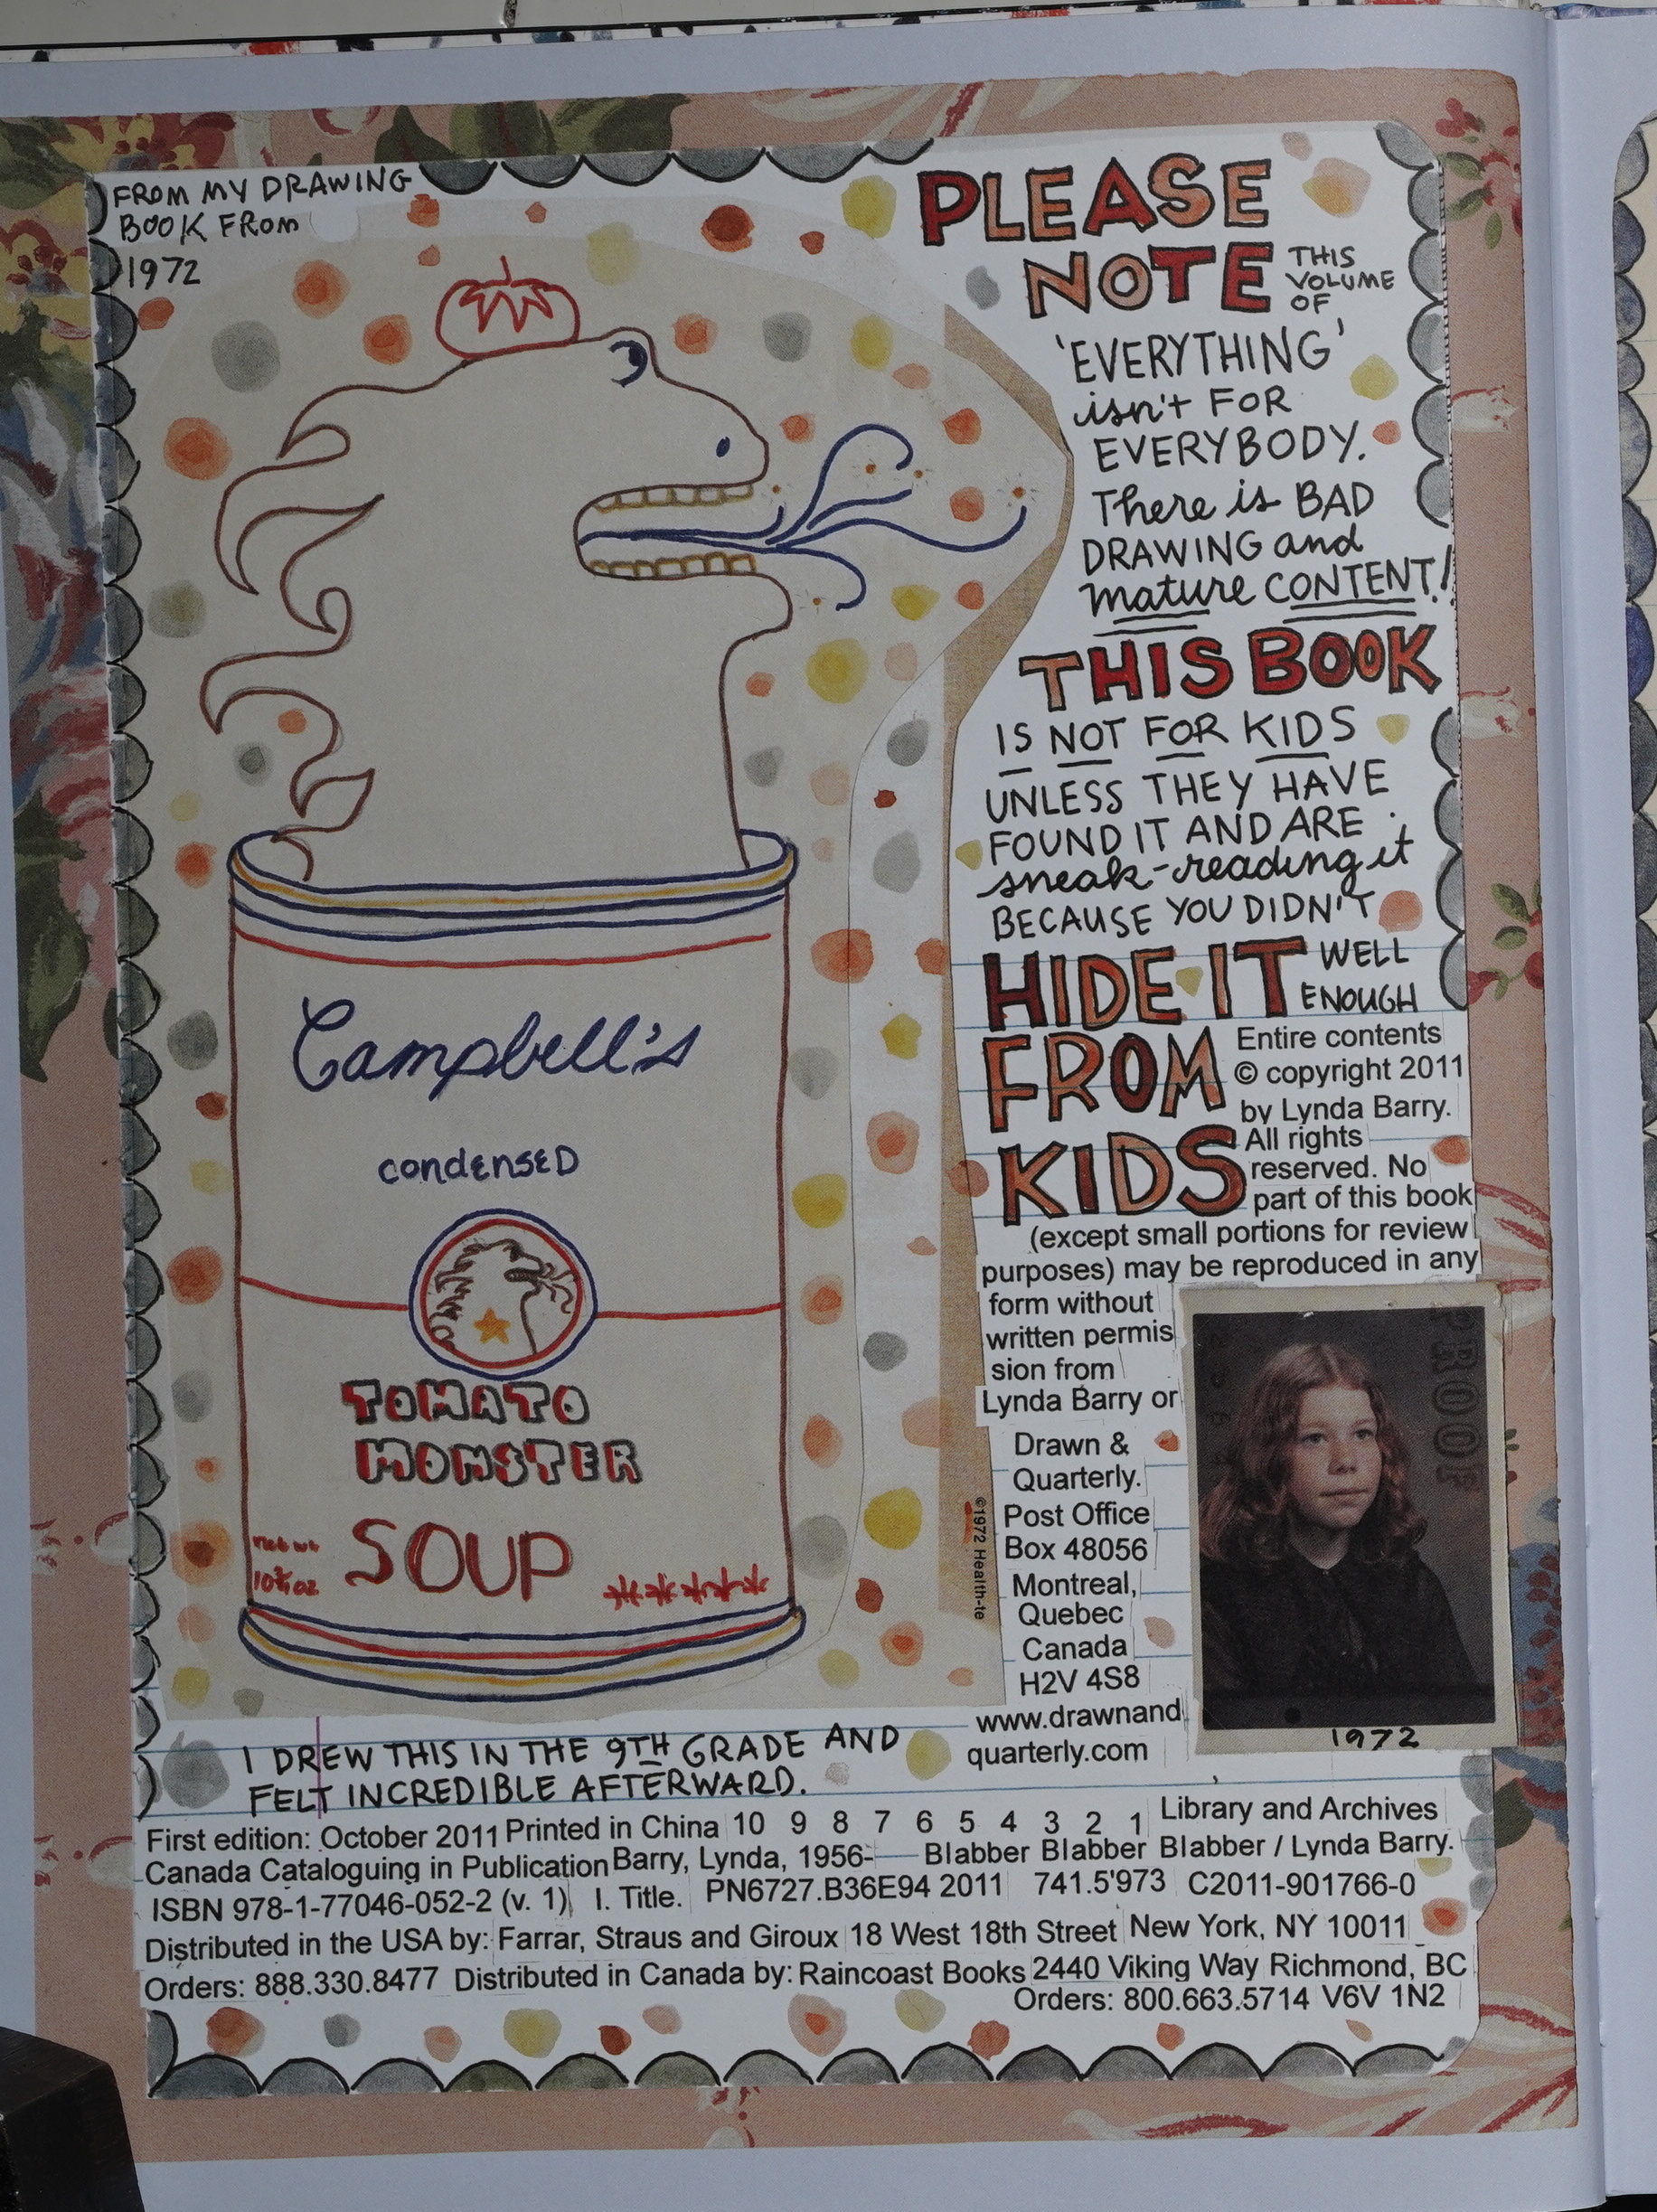 FROM MY DRAWING
BOOK FROM
1972
PLEASE
NOTE THIS
VOLUME
OF
'EVERYTHING'
isn't FOR
EVERYBODY.
There is BAD
DRAWING and
mature CONTENT!
THIS BOOK
IS NOT FOR KIDS
UNLESS THEY HAVE
FOUND IT AND ARE
sneak-reading it
BECAUSE YOU DIDN'T
HIDE IT WELL
ENOUGH
FROM
KIDS
Entire contents
© copyright 2011
by Lynda Barry.
All rights
reserved. No
part of this book
(except small portions for review
purposes) may be reproduced in any
form without
written permis
sion from
Lynda Barry or
Drawn &
Quarterly.
Post Office
Box 48056
Montreal,
Quebec
Canada
H2V 4S8
www.drawnand
quarterly.com
PROOF
1972
©1972 Health-te
Campbell's
condensed
TOMATO
MONSTER
SOUP
net wt
oz
I DREW THIS IN THE 9TH GRADE AND
FELT INCREDIBLE AFTERWARD.
First edition: October 2011 Printed in China 10 9 8 7 6 5 4 3 2 1 Library and Archives
Canada Cataloguing in Publication Barry, Lynda, 1956- Blabber Blabber Blabber / Lynda Barry.
ISBN 978-1-77046-052-2 (v. 1) I. Title. PN6727.B36E94 2011 741.5'973 C2011-901766-0
Distributed in the USA by: Farrar, Straus and Giroux 18 West 18th Street New York, NY 10011
Orders: 888.330.8477 Distributed in Canada by: Raincoast Books 2440 Viking Way Richmond, BC
Orders: 800.663.5714 V6V 1N2